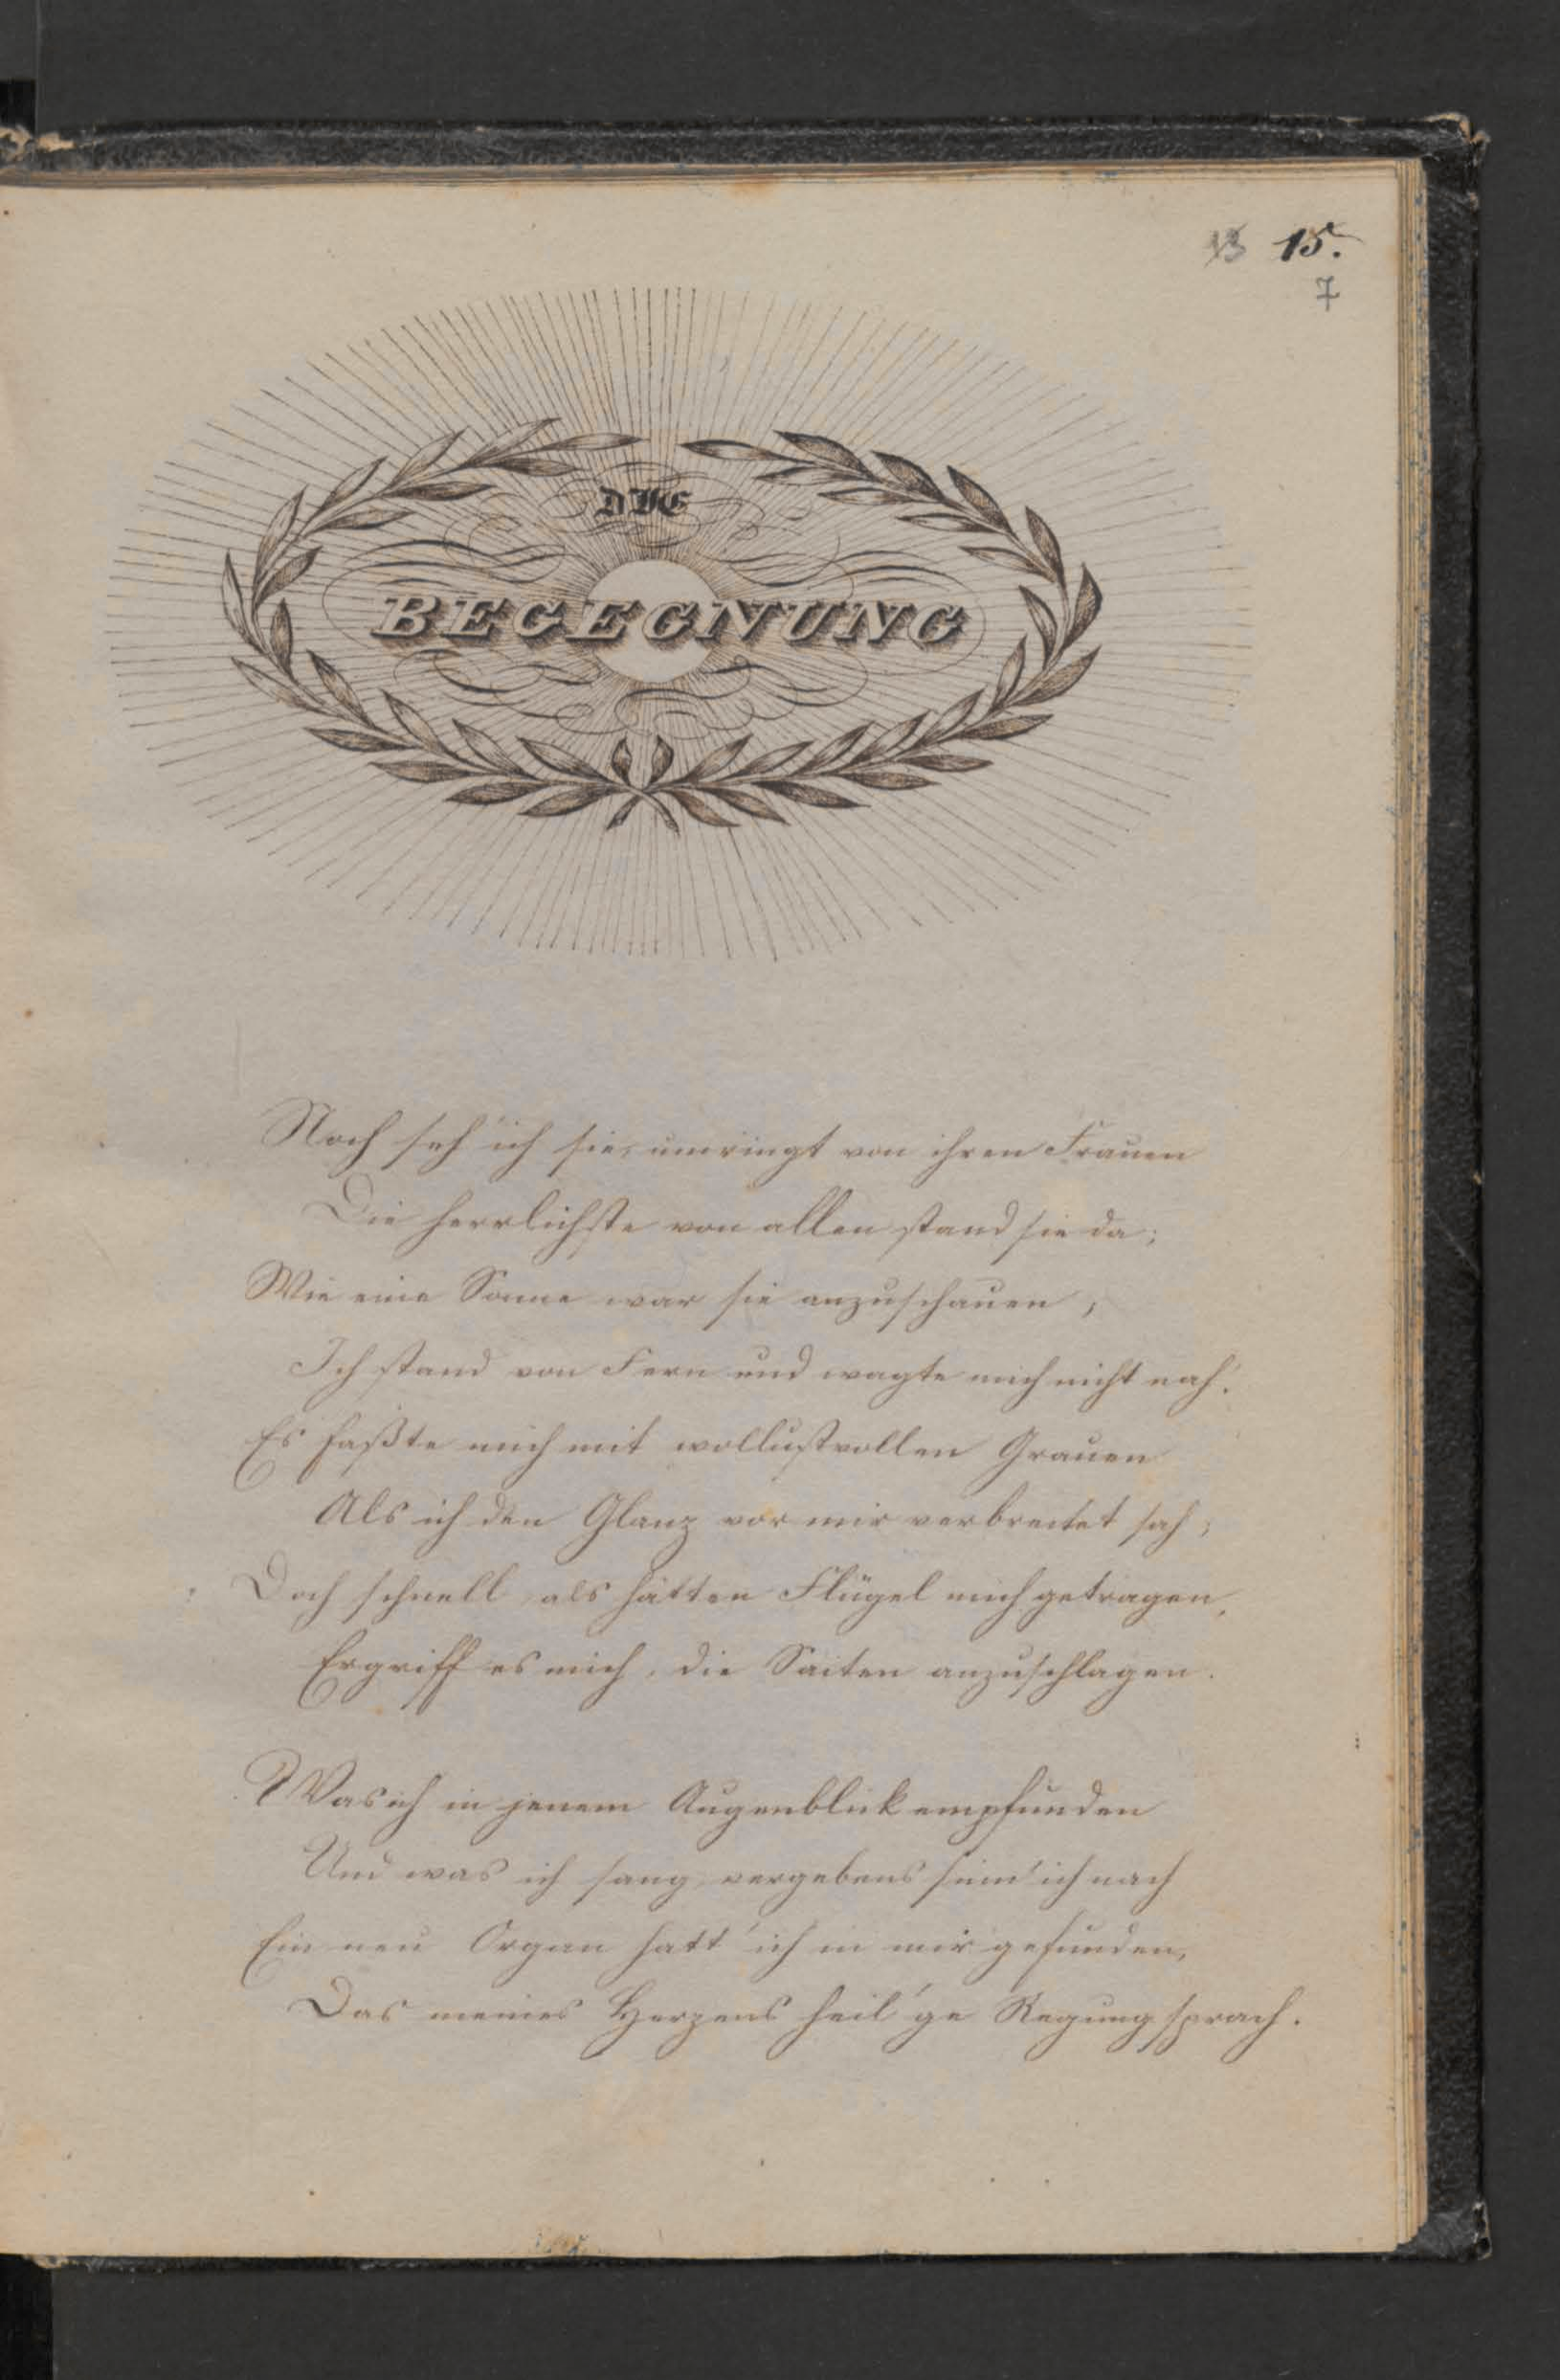 13 15.
7
DIE
BEGEGNUNG
Noch seh' ich sie, umringt von ihren Frauen
Die herrlichste von allen stand sie da;
Wie eine Sonne war sie anzuschauen,
Ich stand von Fern und wagte mich nicht nah'.
Es faßte mich mit wollustvollen Grauen
Als ich den Glanz vor mir verbreitet sah;
Doch schnell, als hätten Flügel mich getragen,
Ergriff es mich, die Saiten anzuschlagen.
Was ich in jenem Augenblick empfunden
Und was ich sang, vergebens sinn' ich nach
Ein neu Organ hatt' ich in mir gefunden,
Das meines Herzens heil'ge Regung sprach.